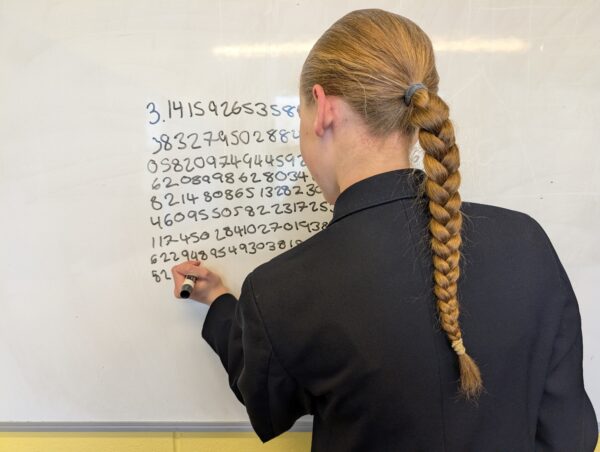 3.14159265358
383279502884
05820974944592
6208998628034
821480865132823
46095505822317253
117450284102701938
622948954930381
82